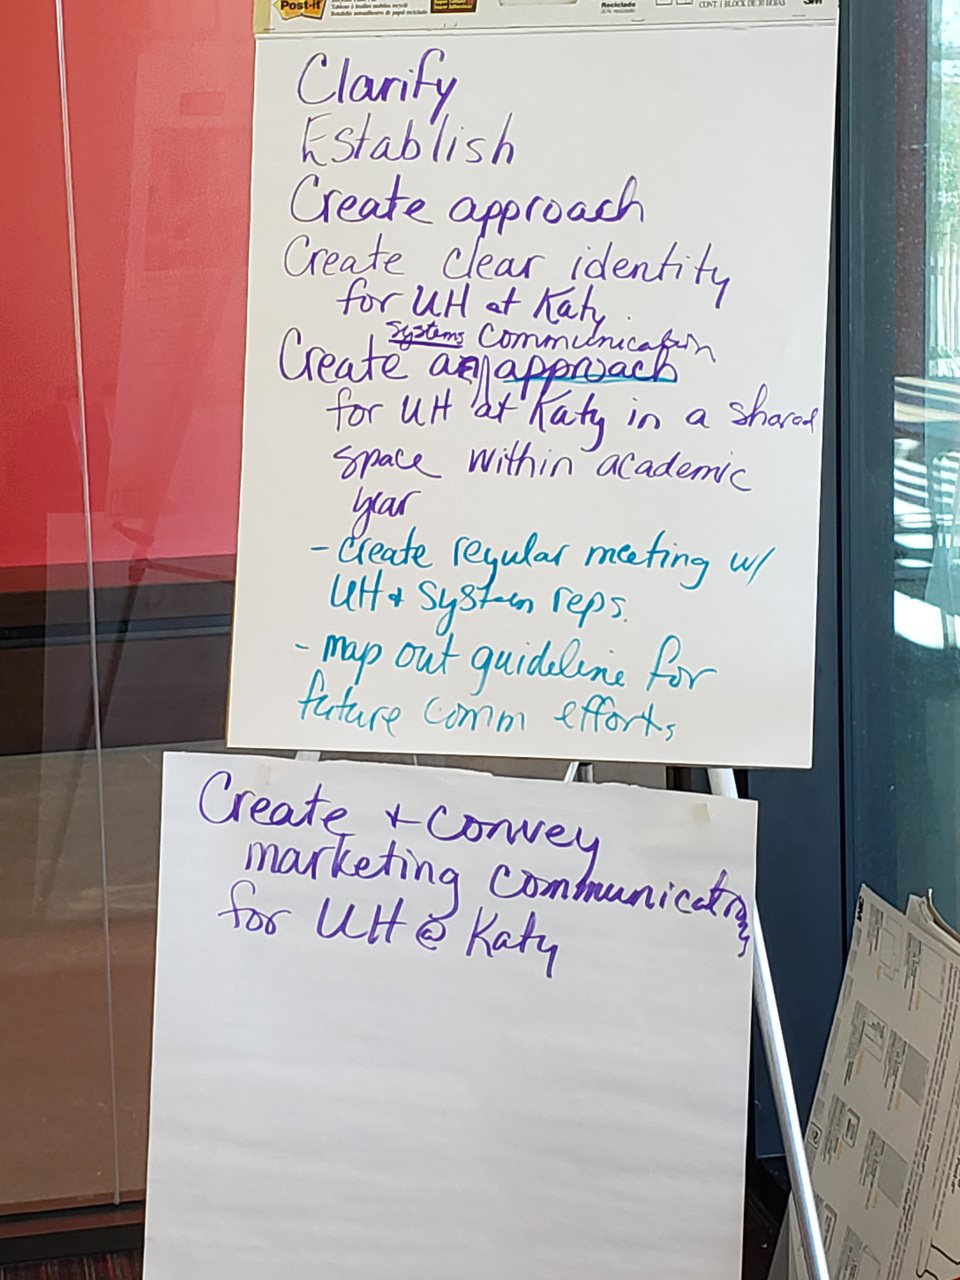 Post-it
CONT. 1 BLOCK DE 30 HOJAS
Reciclado
3M
Clarify
Establish
Create approach
Create clear identity
for UH at Katy.
Systems Communication
Create an approach
for UH at Katy in a shared
space within academic
year
- create regular meeting w/
UH + System reps.
- map out guideline for
future comm efforts
Create + convey
marketing communications
for UH @ Katy